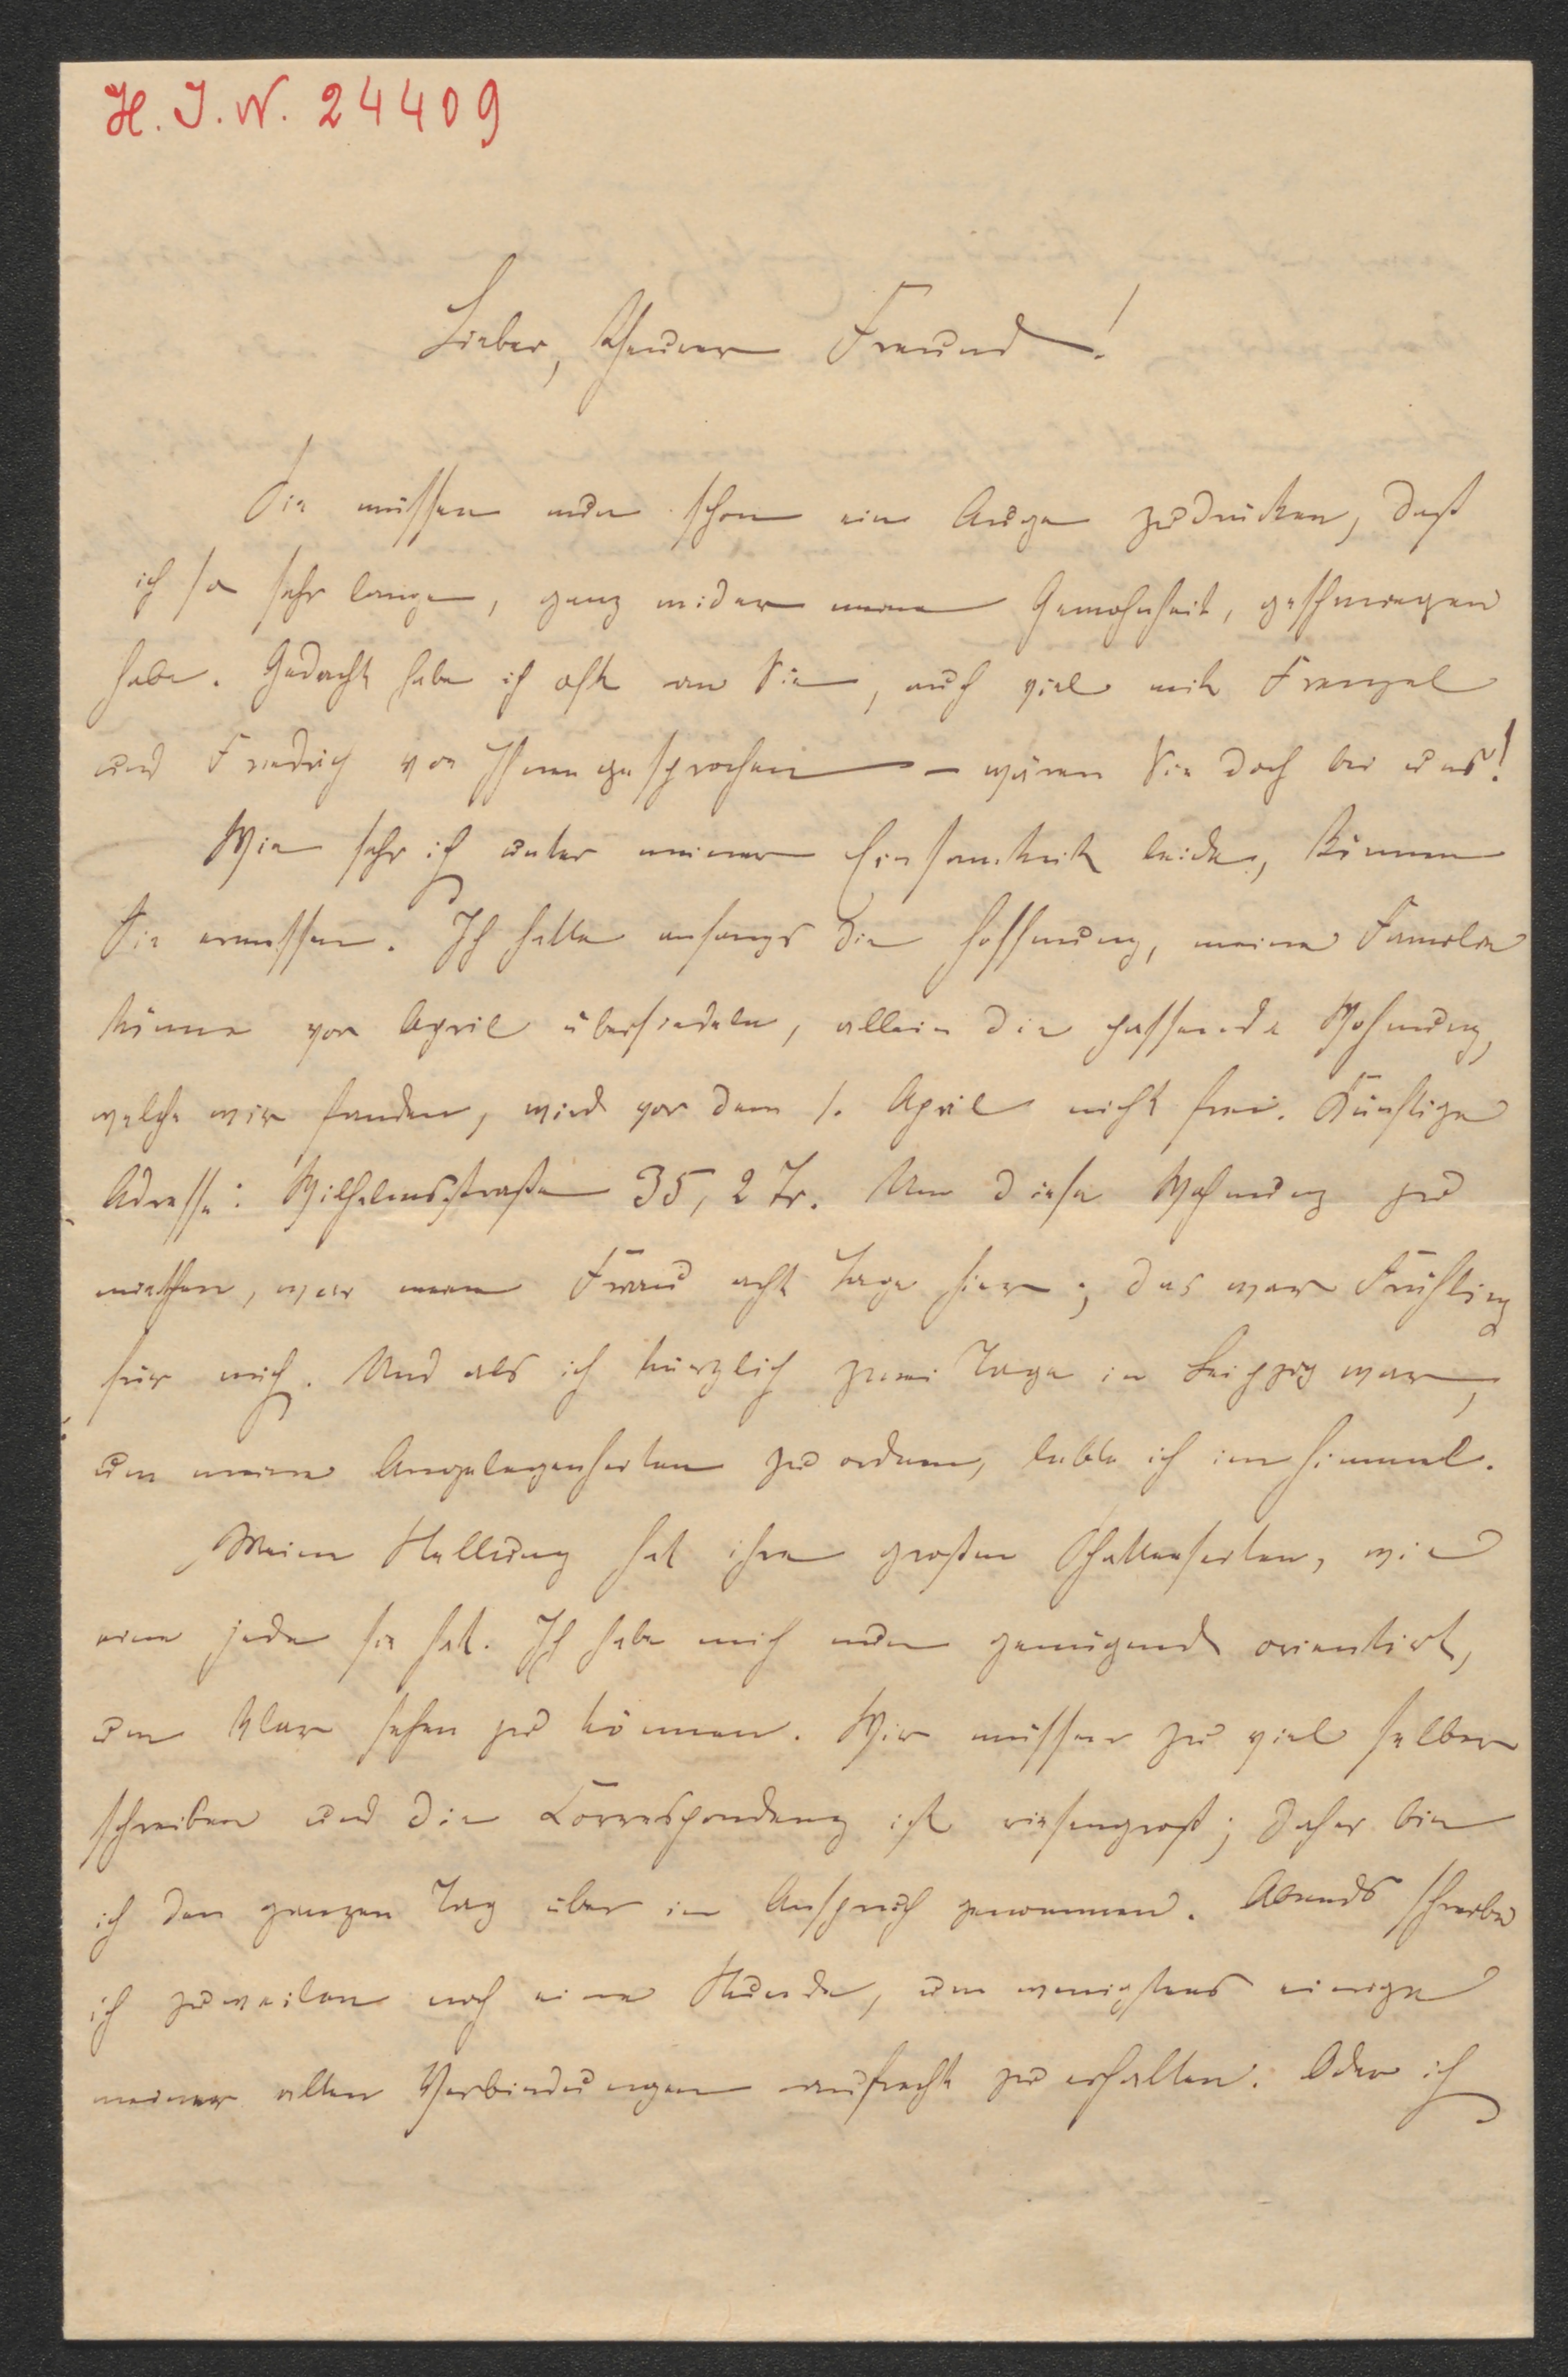 H. I. N. 24409
Lieber, theurer Freund!
Sie müssen nun schon ein Auge zudrücken, daß
ich so sehr lange, ganz wider meine Gewohnheit, geschwiegen
habe. Gedacht habe ich oft an Sie, auch viel mit Frenzel
und Friedrich von Ihnen gesprochen — wären Sie doch bei uns!
Wie sehr ich unter meiner Einsamkeit leide, können
Sie ermessen. Ich hatte anfangs die Hoffnung, meine Familie
könne vor April übersiedeln, allein die passende Wohnung,
welche wir fanden, wird vor dem 1. April nicht frei. Künftige
Adresse: Wilhelmsstraße 35, 2 Tr. Um diese Wohnung zu
miethen, war meine Frau acht Tage hier; das war Frühling
für mich. Und als ich kürzlich zwei Tage in Leipzig war,
um meine Angelegenheiten zu ordnen, lebte ich im Himmel.
Meine Stellung hat ihre großen Schattenseiten, wie
eine jede sie hat. Ich habe mich nun genügend orientirt,
um klar sehen zu können. Wir müssen zu viel selber
schreiben und die Correspondenz ist riesengroß; daher bin
ich den ganzen Tag über in Anspruch genommen. Abends schreibe
ich zuweilen noch eine Stunde, um wenigstens einige
meiner alten Verbindungen aufrecht zu erhalten. Oder ich